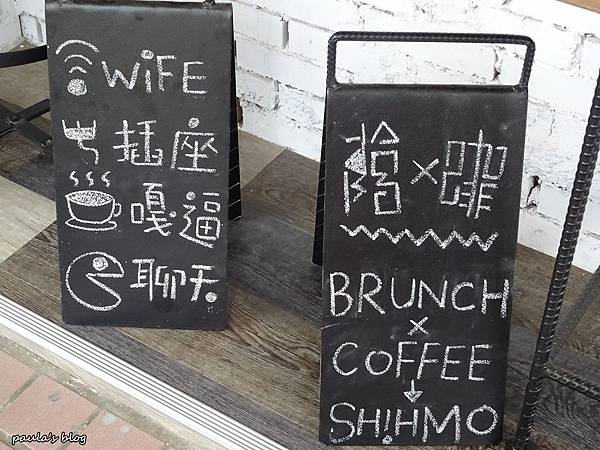 WiFE
插座
嘎逼
聊天
拾×咖
BRUNCH
×
COFFEE
↓
SH!HMO
paula's blog